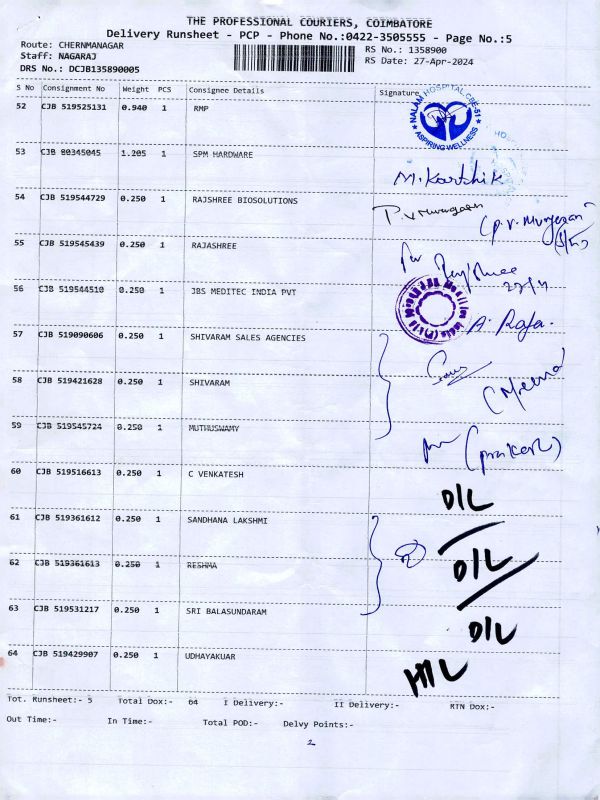 THE PROFESSIONAL COURIERS, COIMBATORE
Delivery Runsheet - PCP - Phone No.:0422-3505555 - Page No.:5
Route: CHERNMANAGAR RS No.: 1358900
Staff: NAGARAJ RS Date: 27-Apr-2024
DRS No.: DCJB135890005
S No Consignment No Weight PCS Consignee Details Signature
52 CJB 519525131 0.940 1 RMP
NALAM HOSPITAL CBE-51
ASPIRING WELLNESS
53 CJB 80345045 1.205 1 SPM HARDWARE M.Karthik
54 CJB 519544729 0.250 1 RAJSHREE BIOSOLUTIONS P.V Murugesan
(P.V. Murugesan)
55 CJB 519545439 0.250 1 RAJASHREE
27/4
56 CJB 519544510 0.250 1 JBS MEDITEC INDIA PVT A. Raja.
57 CJB 519090606 0.250 1 SHIVARAM SALES AGENCIES
58 CJB 519421628 0.250 1 SHIVARAM (Meena
59 CJB 519545724 0.250 1 MUTHUSWAMY
60 CJB 519516613 0.250 1 C VENKATESH D/L
61 CJB 519361612 0.250 1 SANDHANA LAKSHMI
62 CJB 519361613 0.250 1 RESHMA D/L
63 CJB 519531217 0.250 1 SRI BALASUNDARAM D/L
64 CJB 519429907 0.250 1 UDHAYAKUAR
Tot. Runsheet:- 5 Total Dox:- 64 I Delivery:- II Delivery:- RTN Dox:-
Out Time:- In Time:- Total POD:- Delvy Points:-
2